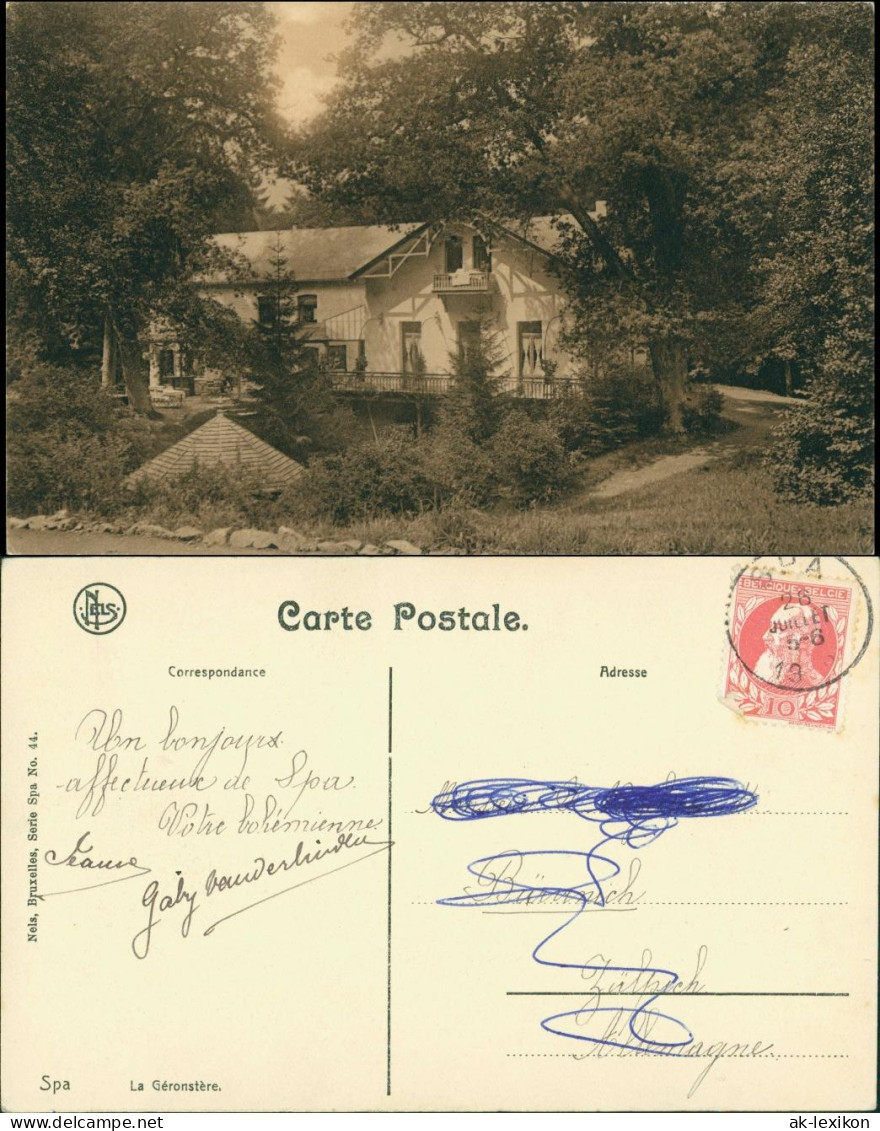 NELS
Carte Postale.
SPA
26
JUILLET
5-6
13
BELGIQUE-BELGIË
10
Correspondance
Adresse
Un bonjours
affectueux de Spa.
Votre bohémienne
Jeanne
Gaby Vanderlinden
Zülpich
Allemagne.
Nels, Bruxelles, Serie Spa No. 44.
Spa La Géronstère.
ak-lexikon